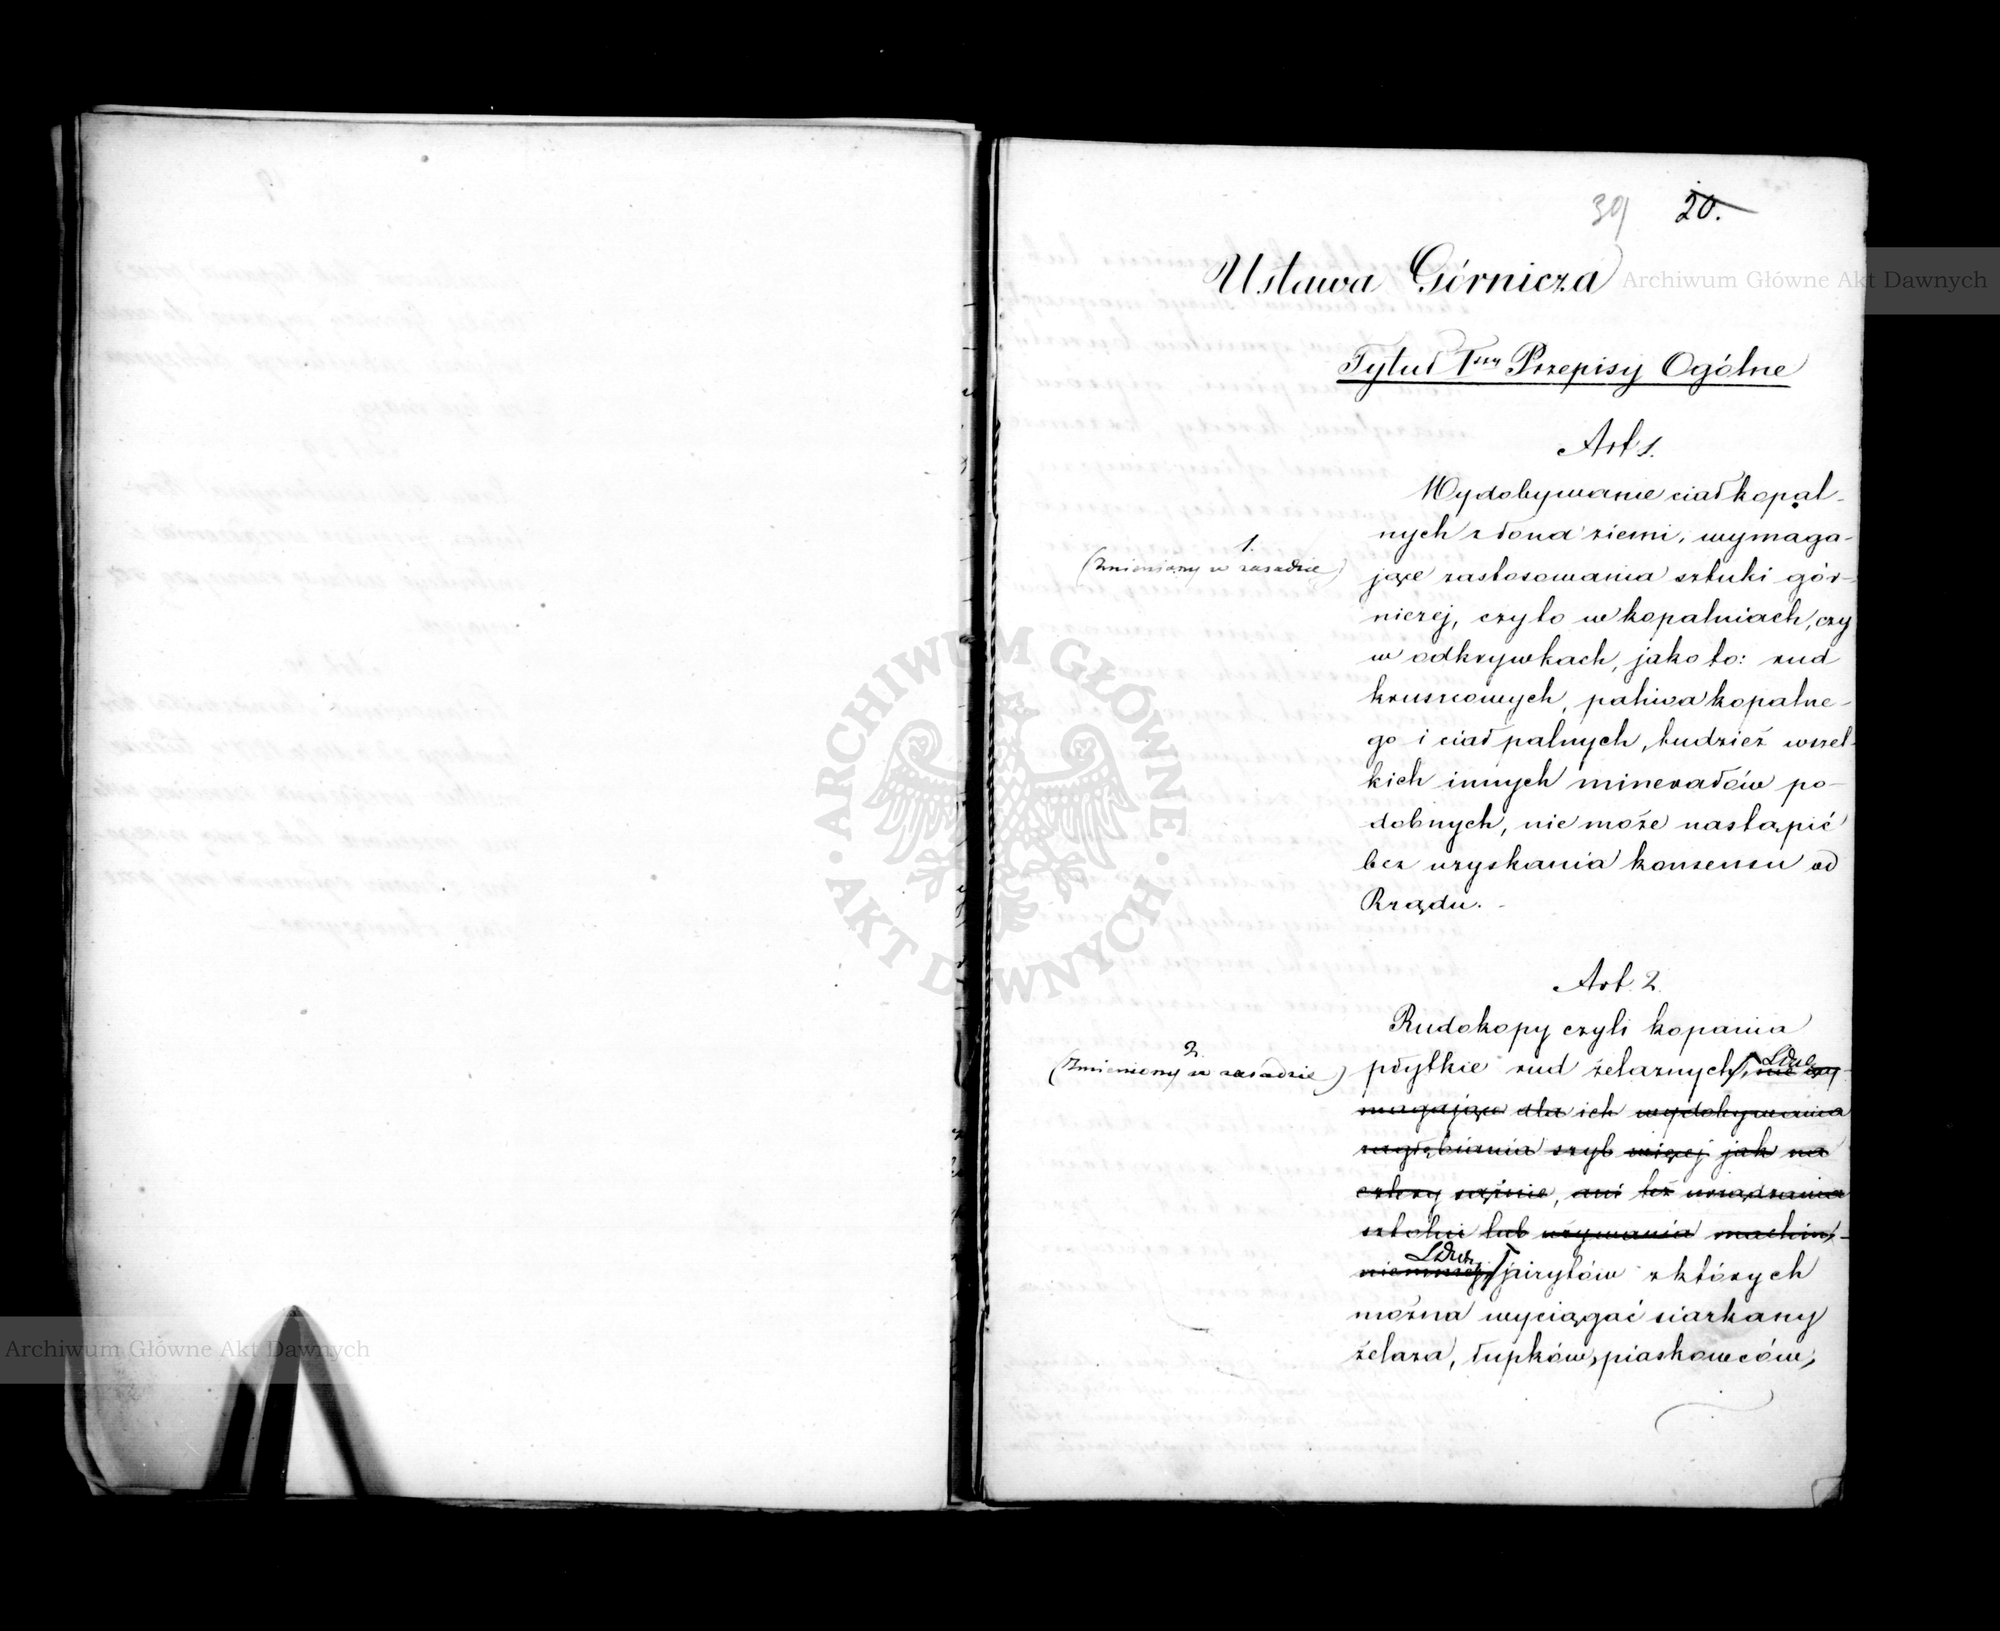 39 20.
Ustawa Górnicza
Archiwum Główne Akt Dawnych
Tytuł Iszy Przepisy Ogólne
Art 1.
Wydobywanie ciał kopal-
nych z łona ziemi, wymaga-
1.
(Zmieniony w zasadzie)
jące zastosowania sztuki gór-
niczej, czyto w kopalniach, czy
w odkrywkach, jako to: rud
kruszcowych, paliwa kopalne-
go i ciał palnych, tudzież wszel-
kich innych minerałów po-
dobnych, nie może nastąpić
bez uzyskania konsensu od
Rządu.
ARCHIWUM GŁÓWNE
AKT DAWNYCH
Art. 2.
Rudokopy czyli kopania
2.
(Zmieniony w zasadzie)
płytkie rud żelaznych, nie wy-
magające dla ich wydobywania
zagłębiania szyb więcej jak na
cztery sążnie, ani też urządzania
sztolni lub używania machin,
niemniej, pirytów z których
można wyciągać siarkany
żelaza, łupków, piaskowców,
Archiwum Główne Akt Dawnych